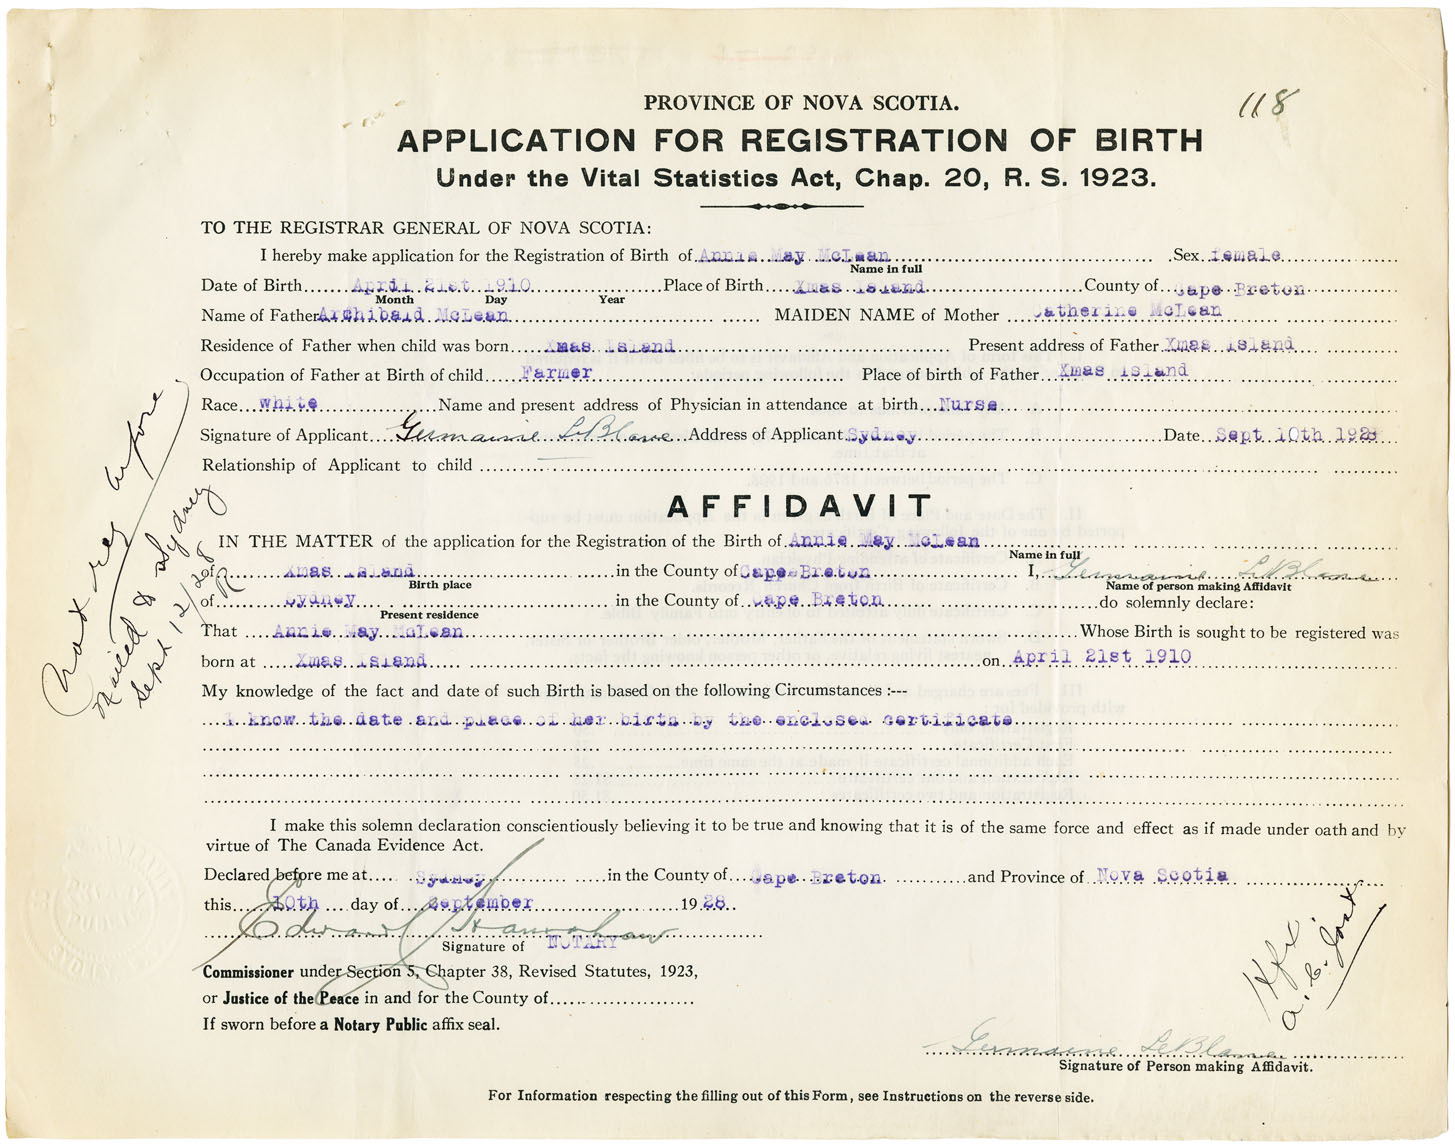 118
PROVINCE OF NOVA SCOTIA.
APPLICATION FOR REGISTRATION OF BIRTH
Under the Vital Statistics Act, Chap. 20, R. S. 1923.
TO THE REGISTRAR GENERAL OF NOVA SCOTIA:
I hereby make application for the Registration of Birth of Annie May McLean Sex female
Name in full
Date of Birth April 21st 1910 Place of Birth Xmas Island County of Cape Breton
Month Day Year
Name of Father Archibald McLean MAIDEN NAME of Mother Catherine McLean
Residence of Father when child was born Xmas Island Present address of Father Xmas Island
Occupation of Father at Birth of child Farmer Place of birth of Father Xmas Island
Race white Name and present address of Physician in attendance at birth Nurse
Signature of Applicant Germaine LeBlanc Address of Applicant Sydney Date Sept 10th 1928
Relationship of Applicant to child
AFFIDAVIT
IN THE MATTER of the application for the Registration of the Birth of Annie May McLean
Name in full
of Xmas Island in the County of Cape Breton I, Germaine LeBlanc
Birth place Name of person making Affidavit
of Sydney in the County of Cape Breton do solemnly declare:
Present residence
That Annie May McLean Whose Birth is sought to be registered was
born at Xmas Island on April 21st 1910
My knowledge of the fact and date of such Birth is based on the following Circumstances :---
I know the date and place of her birth by the enclosed certificate
I make this solemn declaration conscientiously believing it to be true and knowing that it is of the same force and effect as if made under oath and by
virtue of The Canada Evidence Act.
Declared before me at Sydney in the County of Cape Breton and Province of Nova Scotia
this 10th day of September 1928
Edward
Signature of NOTARY
Commissioner under Section 5, Chapter 38, Revised Statutes, 1923,
or Justice of the Peace in and for the County of
If sworn before a Notary Public affix seal.
Germaine LeBlanc
Signature of Person making Affidavit.
For Information respecting the filling out of this Form, see Instructions on the reverse side.
Not reg before
Mailed to Sydney
Sept 12/28
R
Hfx